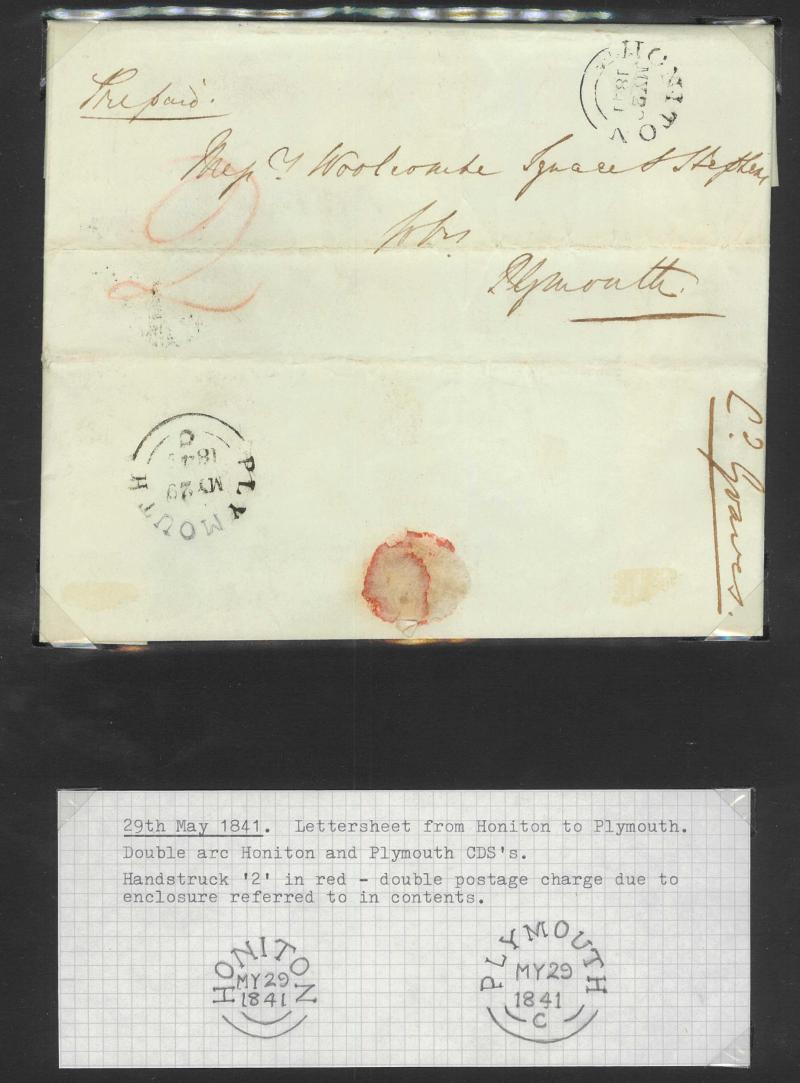 HONITON
MY 29
1841
Prepaid.
Mess.rs Woolcombe Square & Stephens
Plymouth.
2
PLYMOUTH
MY 29
184
C
Graves.
29th May 1841. Lettersheet from Honiton to Plymouth.
Double arc Honiton and Plymouth CDS's.
Handstruck '2' in red - double postage charge due to
enclosure referred to in contents.
HONITON
MY 29
1841
PLYMOUTH
MY 29
1841
C